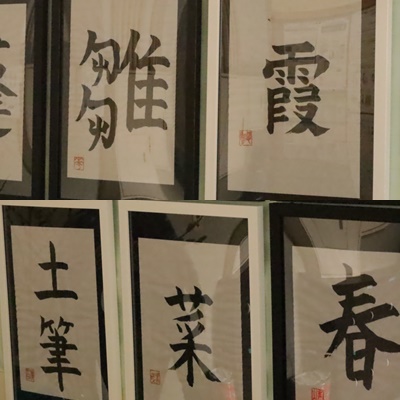 雛
霞
土筆
菜
春